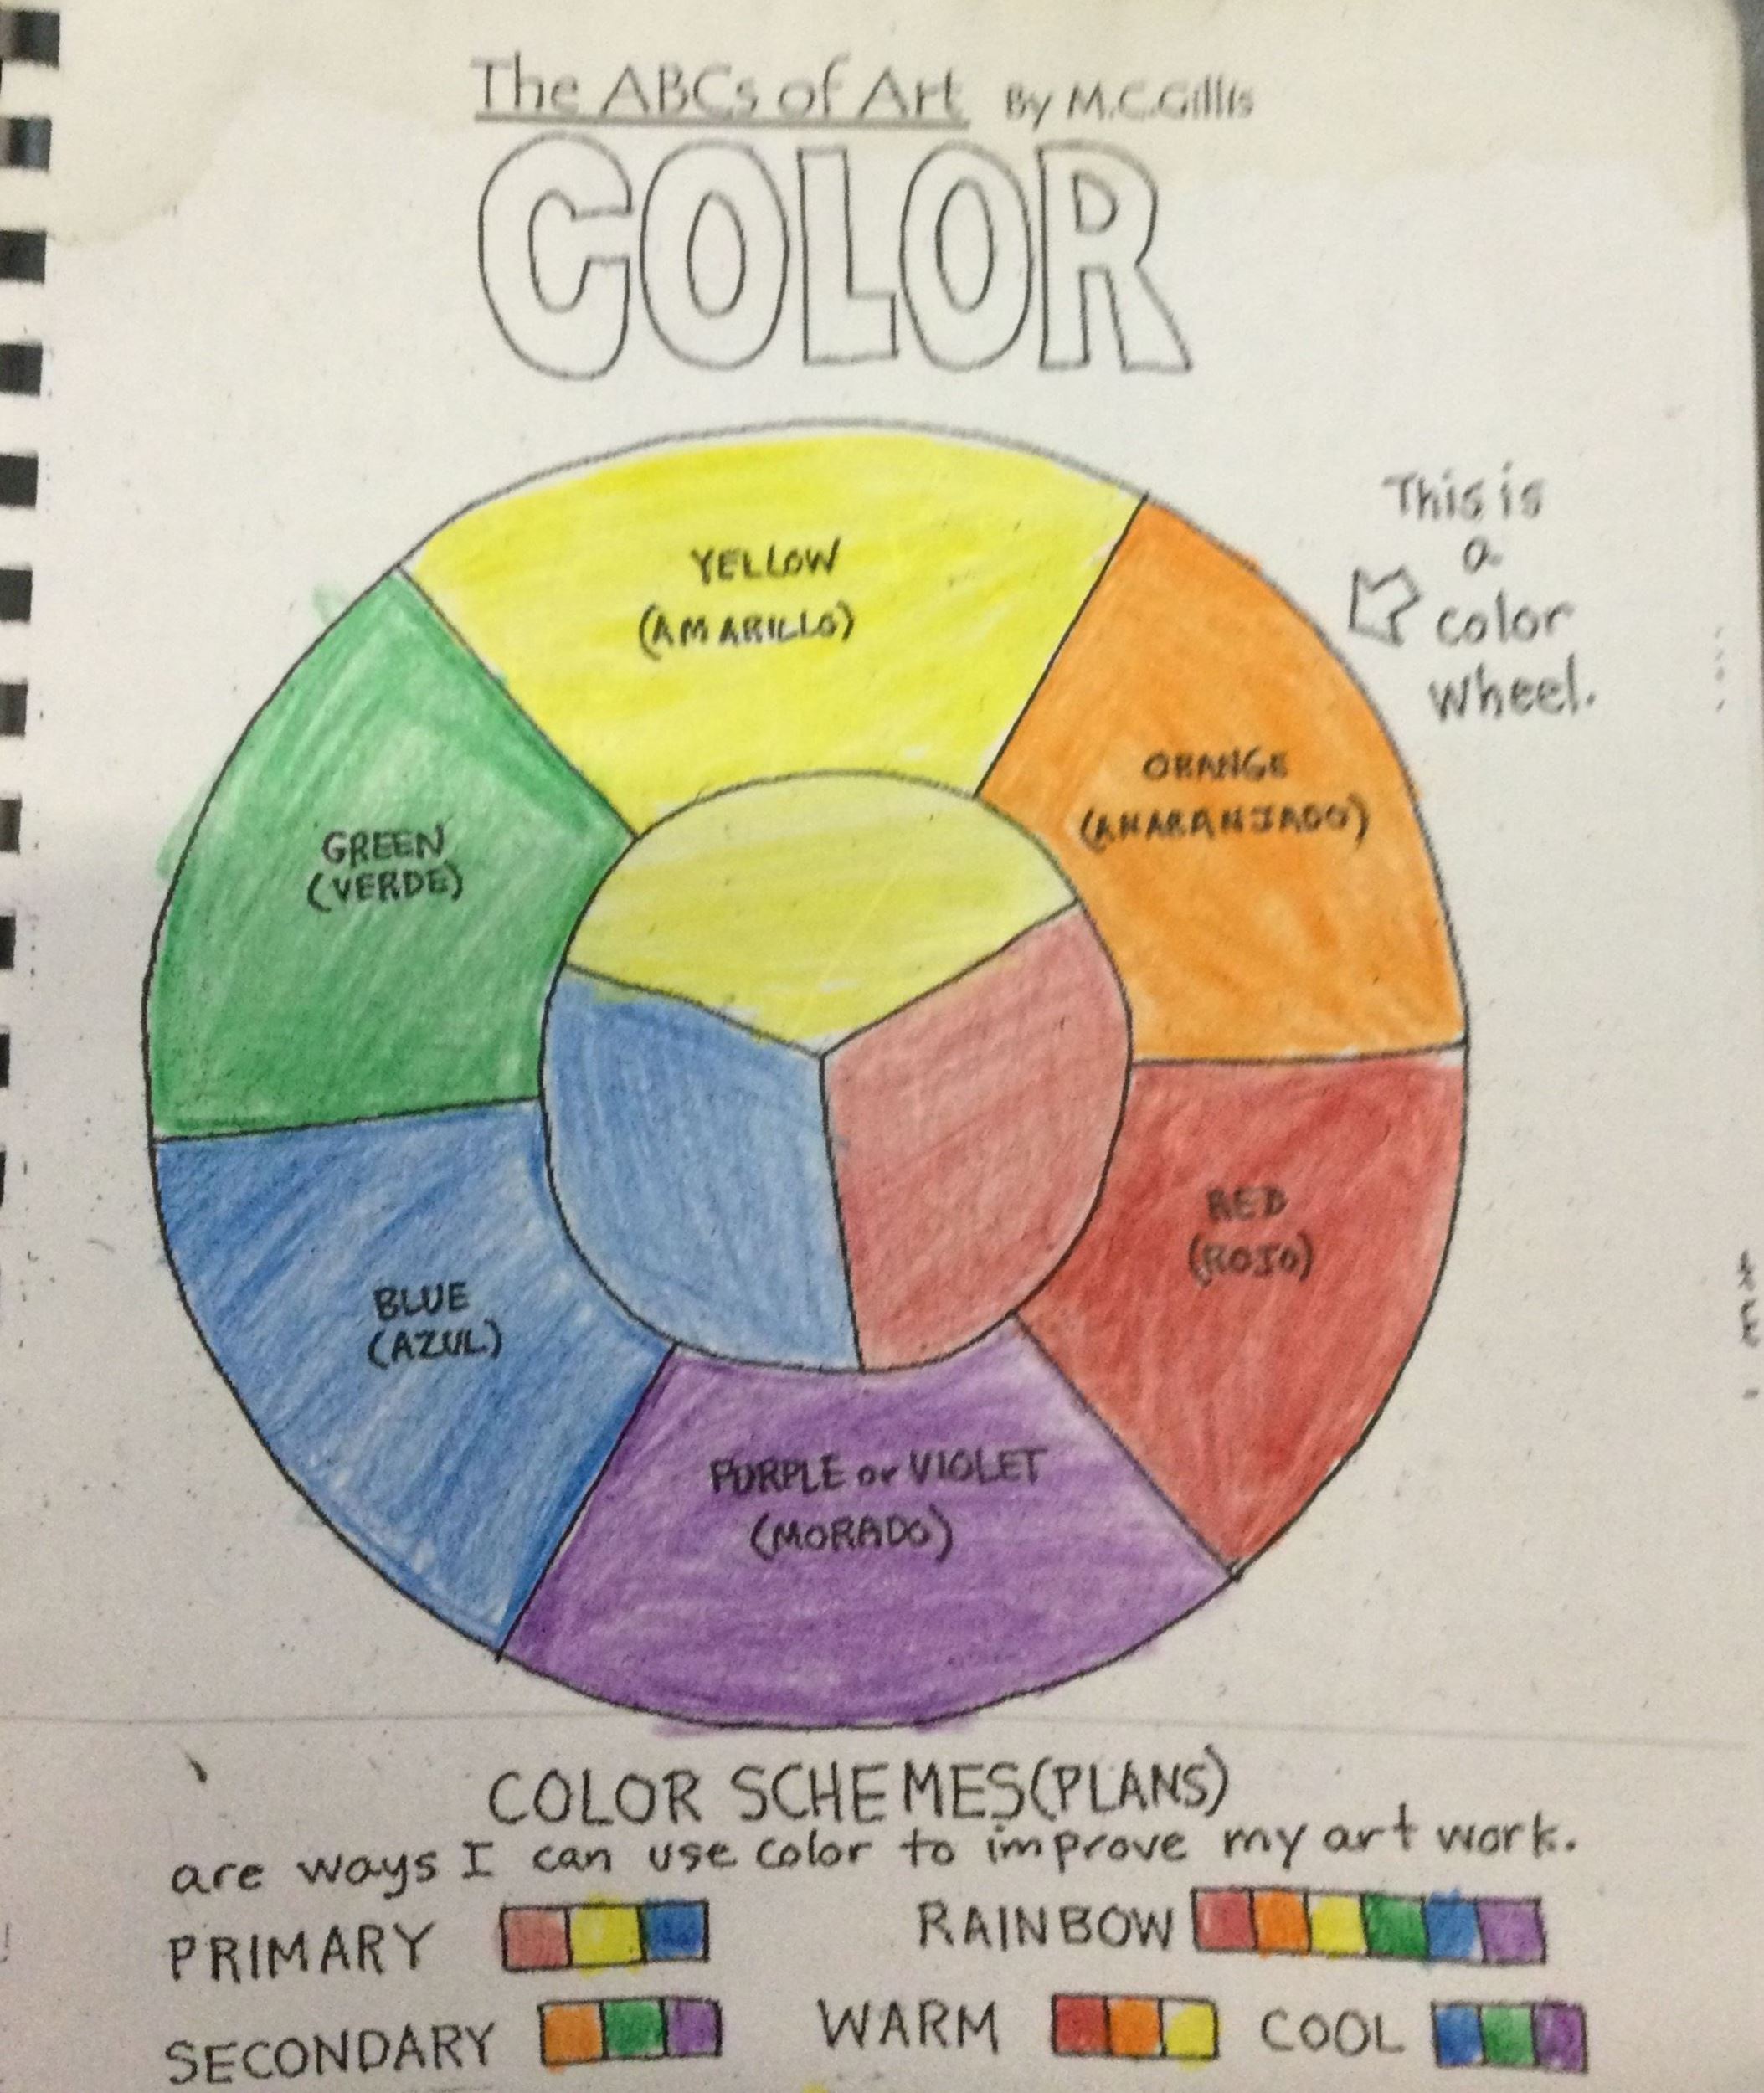 The ABCs of Art By M.C.Gillis
COLOR
This is
a
color
wheel.
YELLOW
(AMARILLO)
ORANGE
(ANARANJADO)
GREEN
(VERDE)
RED
(ROJO)
BLUE
(AZUL)
PURPLE or VIOLET
(MORADO)
COLOR SCHEMES(PLANS)
are ways I can use color to improve my art work.
PRIMARY RAINBOW
SECONDARY WARM COOL